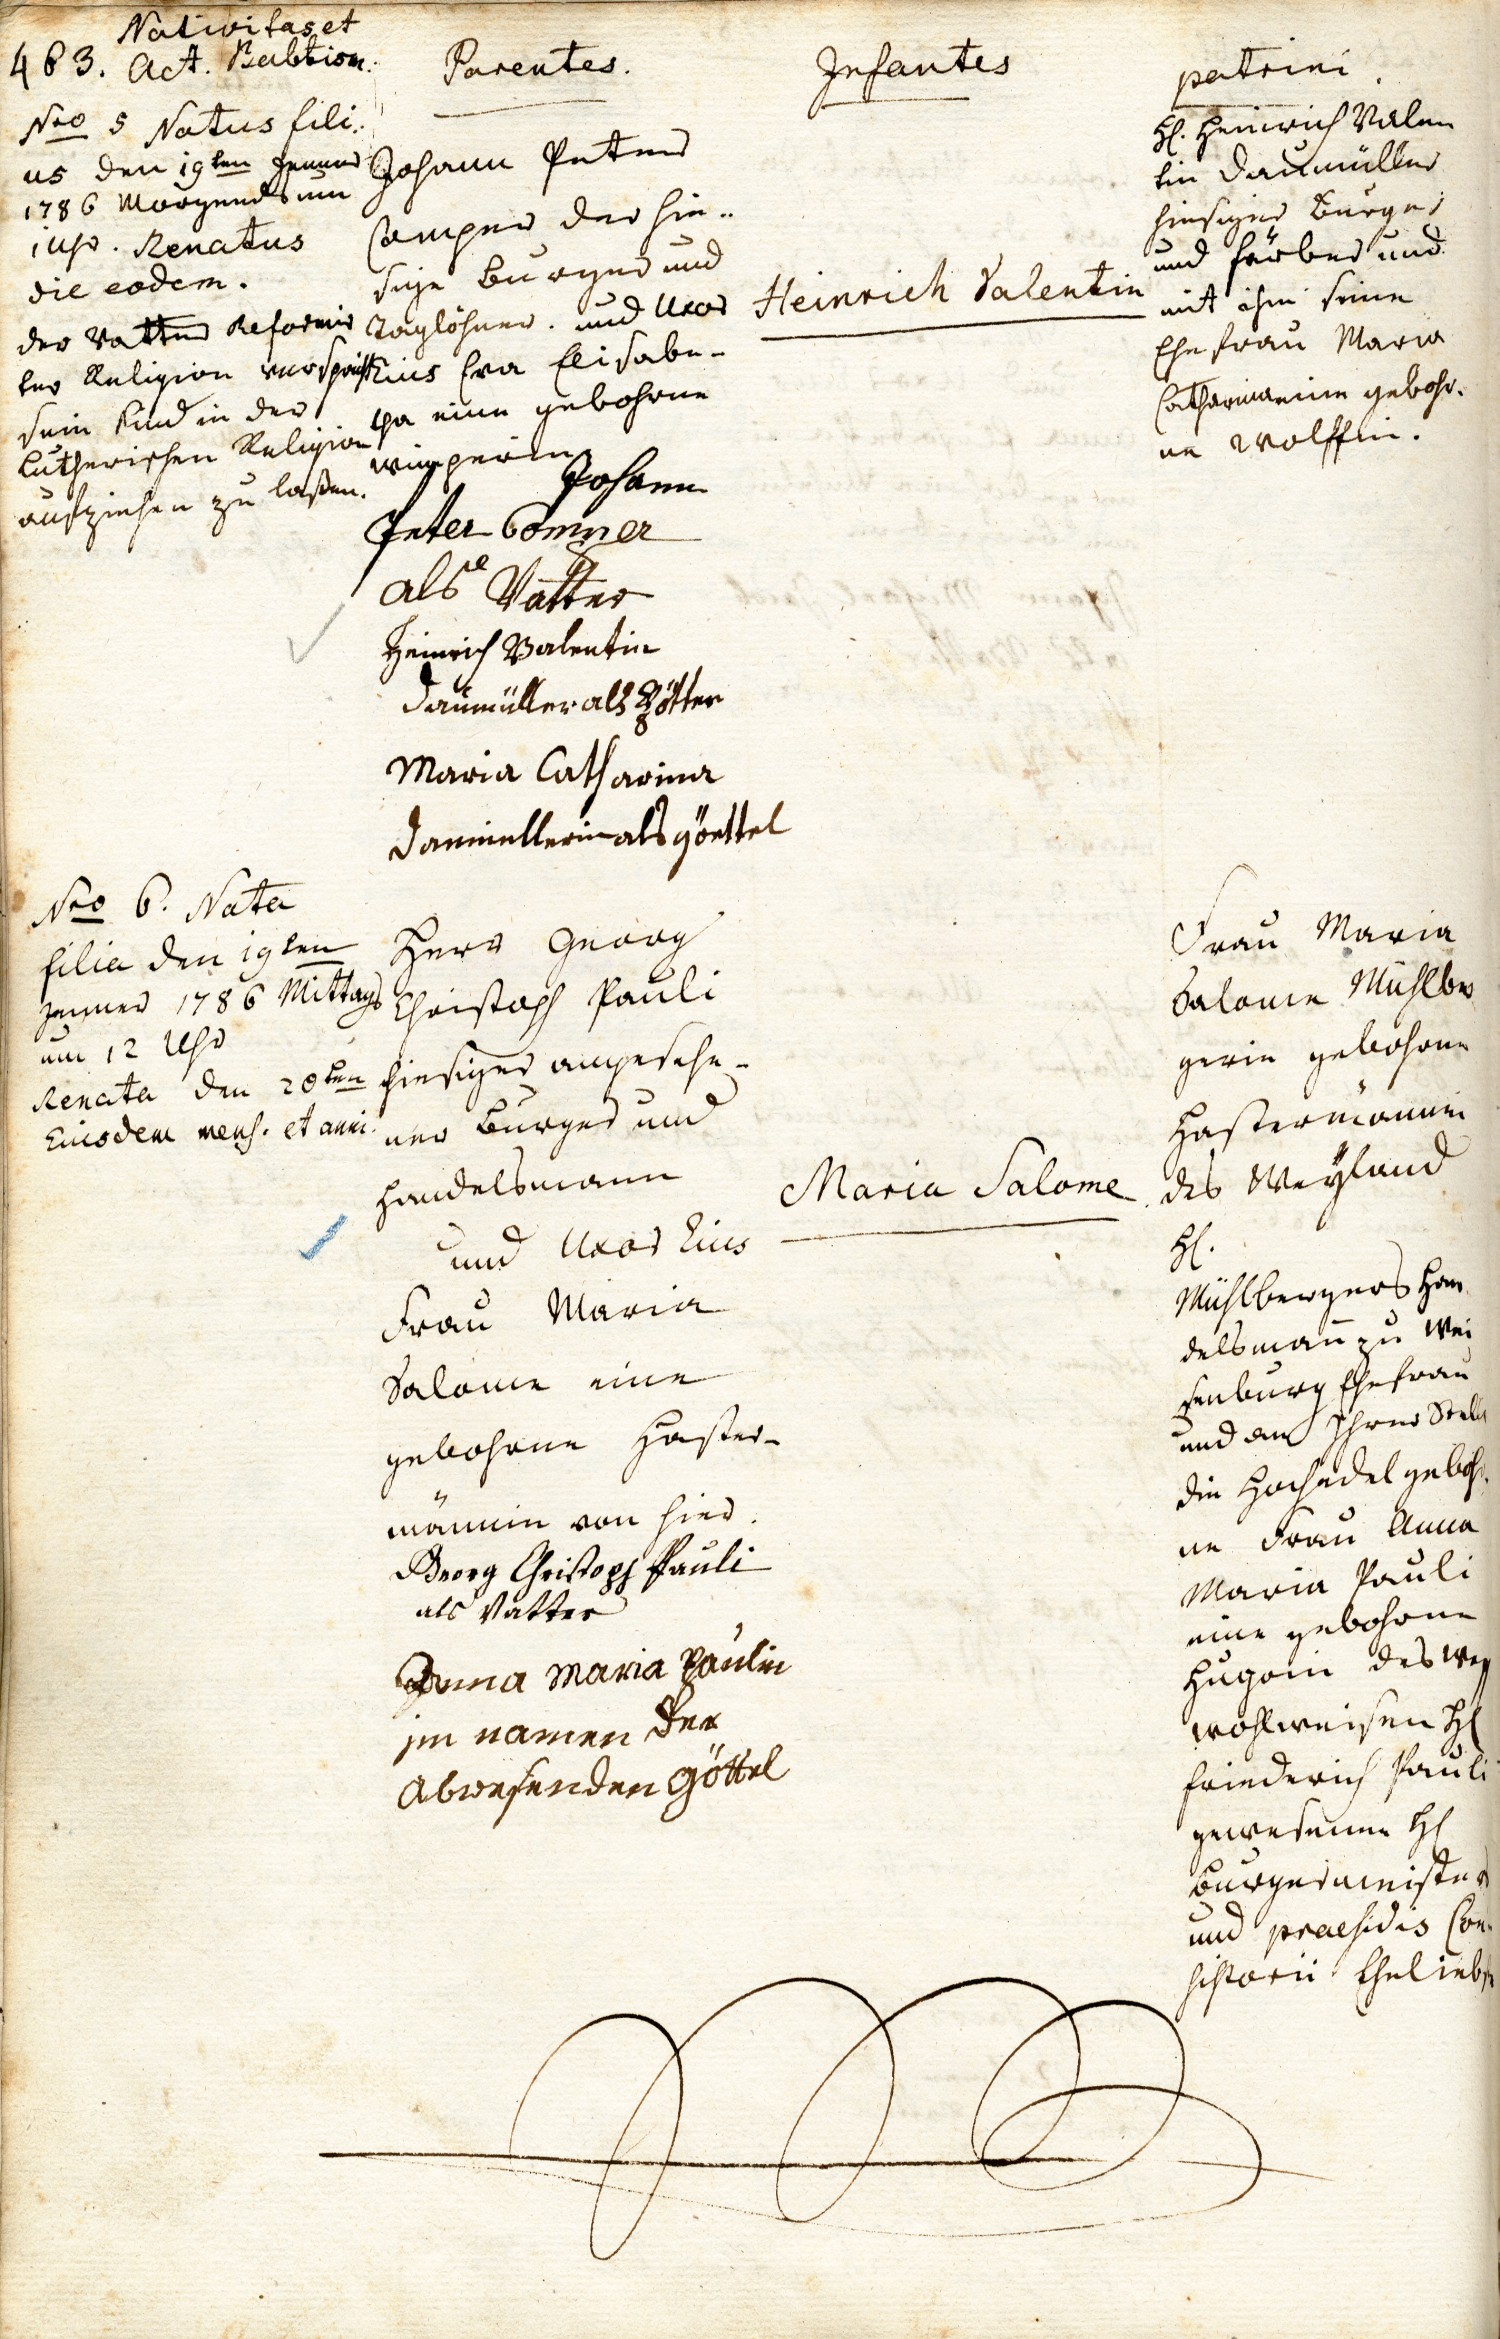 Nativitas et
463. Act. Babtism:
Parentes.
Infantes
patrini.
Nro 5 Natus fili:
us den 19ten Jenner
1786 Morgends um
1 Uhr. Renatus
die eodem.
der Vatter Reformir
ter Religion verspricht
sein Kind in der
Lutherischen Religion
aufziehen zu laßen.
Johann Peter
Comper der hie-
sige Burger und
Taglöhner. und Uxor
Eius Eva Elisabe-
tha eine gebohrne
Johann
Peter Comper
als Vatter
Heinrich Valentin
Daumüller als Götter
Maria Catharina
Daumüllerin als Göettel
Heinrich Valentin
H. Heinrich Valen
tin Daumüller
hiesiger Burger
und Färber und
mit ihm seine
Ehefrau Maria
Catharina eine gebohr.
ne Wolffin.
Nro 6. Nata
filia den 19ten
Jenner 1786 Mittags
um 12 Uhr
Renata den 20ten
Eiusdem mens. et anni.
Herr Georg
Christoph Pauli
hiesiger angesehe-
ner Burger und
Handelsmann
und Uxor Eius
Frau Maria
Salome eine
gebohrne Haster-
männin von hier.
Georg Christoph Pauli
als Vatter
Anna Maria Paulin
im namen der
abwesenden Göttel
Maria Salome
Frau Maria
Salome Mühlber
gerin gebohrne
Hastermännin
des Weyland
H.
Mühlbergers Han
delsmañ zu Wei
senburg Ehefrau
und an Ihrer Stelle
die Hochedelgebohr.
ne Frau Anna
Maria Pauli
eine gebohrne
Hugoin des
wohlweisen H
Friederich Pauli
gewesenen H
Burgermeister
und praesidis Con-
sistorii Eheliebste